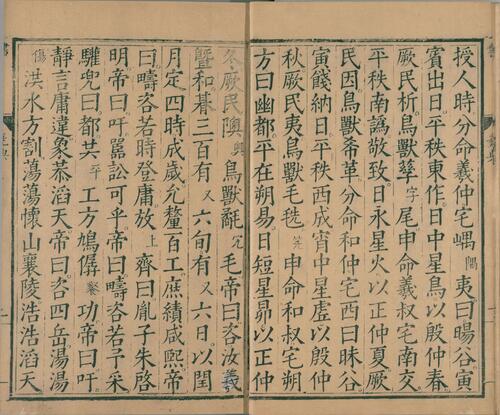 授人時分命羲仲宅嵎隅夷曰暘谷寅
賓出日平秩東作日中星鳥以殷仲春
厥民析鳥獸孳字尾申命羲叔宅南交
平秩南譌敬致日永星火以正仲夏厥
民因鳥獸希革分命和仲宅西曰昧谷
寅餞納日平秩西成宵中星虛以殷仲
秋厥民夷鳥獸毛毨申命和叔宅朔
方曰幽都平在朔易日短星昴以正仲
冬厥民隩鳥獸氄冗毛帝曰咨汝羲
暨和朞三百有又六旬有又六日以閏
月定四時成歲允釐百工庶績咸熙帝
曰疇咨若時登庸放上齊曰胤子朱啓
明帝曰吁嚚訟可乎帝曰疇咨若予采
驩兜曰都共平工方鳩僝功帝曰吁
靜言庸違象恭滔天帝曰咨四岳湯湯
傷洪水方割蕩蕩懷山襄陵浩浩滔天